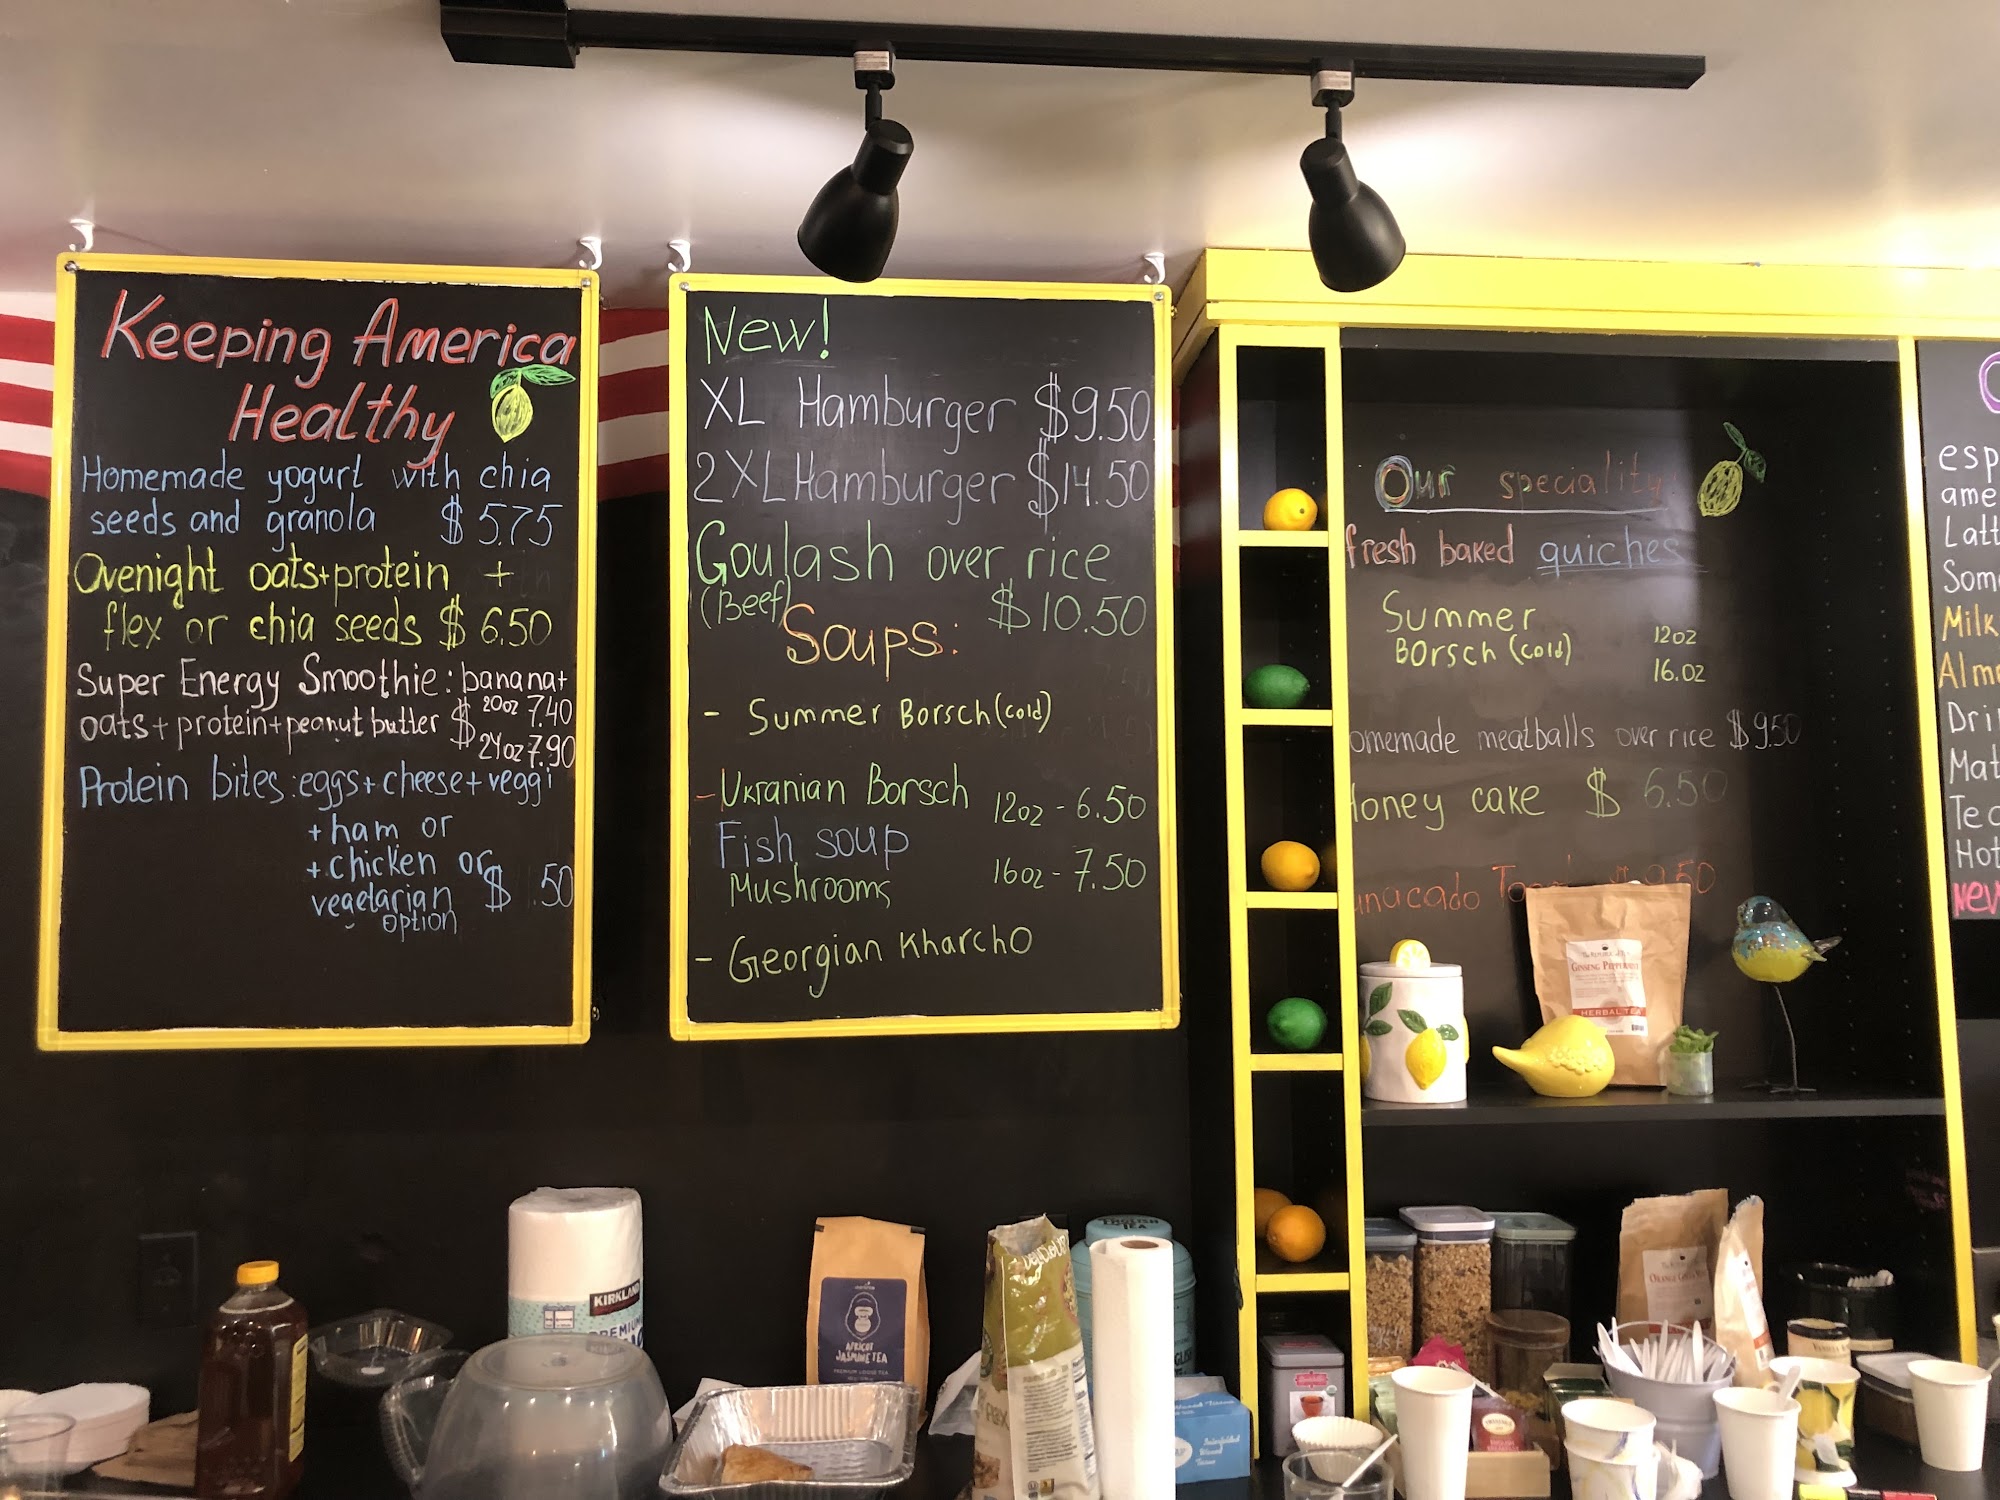 Keeping America
Healthy
Homemade yogurt with chia
seeds and granola $5.75
Ovenight oats+protein +
flex or chia seeds $6.50
Super Energy Smoothie: banana+
oats+protein+peanut butter $ 20oz 7.40
24oz 7.90
Protein bites: eggs+cheese+veggi
+ham or
+chicken or
vegetarian $ .50
option
New!
XL Hamburger $9.50
2XL Hamburger $14.50
Goulash over rice
(Beef) $10.50
Soups:
- Summer Borsch (cold)
- Ukranian Borsch 12oz - 6.50
Fish soup
Mushrooms 16oz - 7.50
- Georgian Kharcho
Our speciality:
fresh baked quiches
Summer
Borsch (cold) 12oz
16.oz
omemade meatballs over rice $9.50
Honey cake $6.50
esp
ame
Latt
Som
Milk
Alm
Dri
Mat
Tea
Hot
New
GINSENG PEPPERMINT
HERBAL TEA
KIRKLAND
PREMIU
APRICOT
JASMINE TEA
PREMIUM LOOSE TEA
ENGLISH
TEA